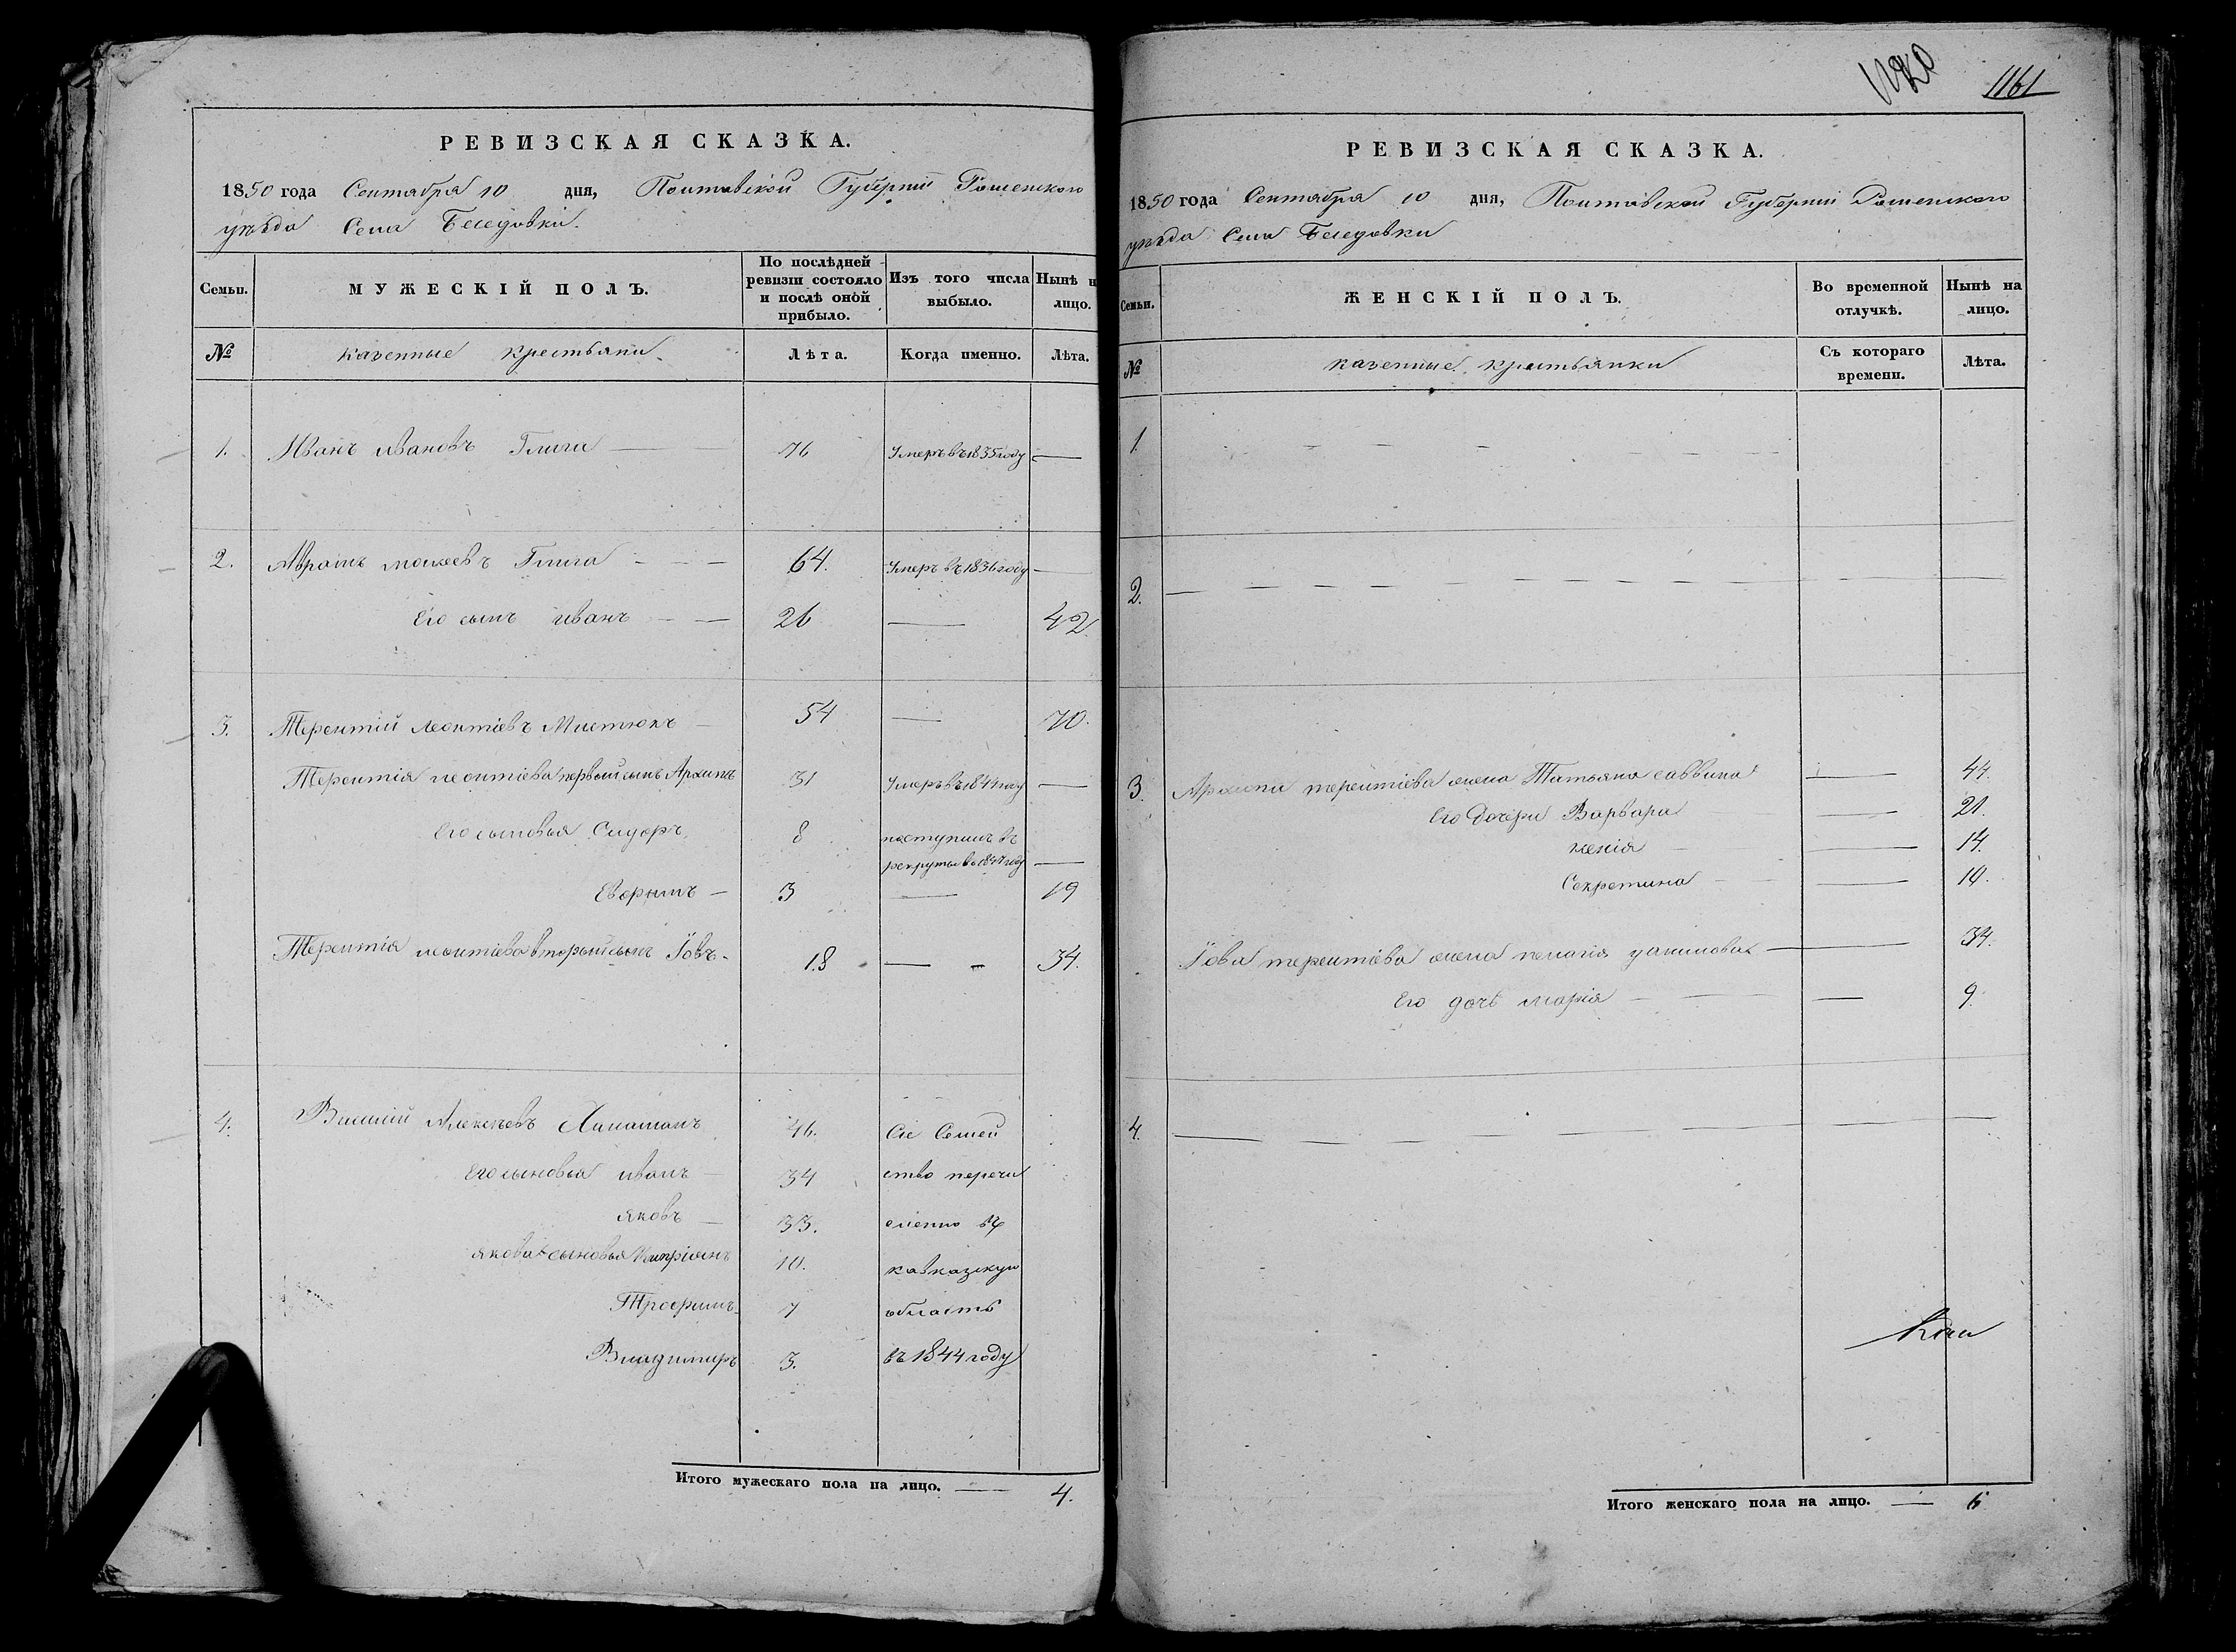 РЕВИЗСКАЯ СКАЗКА.
1850 года Сентября 10 дня, Полтавской Губерніи Роменского
уѣзда Села Беседовки.
Семьи. МУЖЕСКІЙ ПОЛЪ. По послѣдней ревизіи состояло и послѣ оной прибыло. Изъ того числа выбыло. Нынѣ н лицо.
№ казенные крестьяни. Лѣта. Когда именно. Лѣта.
1. Иванъ ивановъ Глига — 76 Умеръ въ 1835 году —
2. Аврамъ моисеевъ Глига — 64. Умеръ въ 1836 году —
Его сынъ иванъ — 26 — 42.
3. Терентій леонтіевъ — 54 — 70.
Терентія леонтіева первый сынъ Архипъ 31 Умеръ въ 1844 году —
Его сыновья Сидоръ 8 поступилъ въ
рекруты въ 1847 году —
Ефримъ — 3 — 19
Терентія леонтіева вторый сынъ Іовъ - 18 — 34.
4. Василій Алексѣевъ 46. Сіе Семей
Его сыновья иванъ — 34 ство перечи
яковъ — 33. слено въ
якова сыновья Киприянъ 10. кавказскую
Трофимъ 7 область
Владимиръ 3. въ 1844 году
Итого мужескаго пола на лицо. — 4.
1161
РЕВИЗСКАЯ СКАЗКА.
1850 года Сентября 10 дня, Полтавской Губерніи Роменского
уѣзда Села Беседовки
Семьи. ЖЕНСКІЙ ПОЛЪ. Во временной отлучкѣ. Нынѣ на лицо.
№ казенные крестьянки Съ котораго времени. Лѣта.
1.
2.
3. Архипа терентіева жена Татьяна саввина — 44.
Его дочери Варвара — 21.
ксенія — 14.
Секретина — 10.
Іова терентіева жена пелагія данилова — 34.
Его дочь марія — 9.
4.
Итого женскаго пола на лицо. — 6